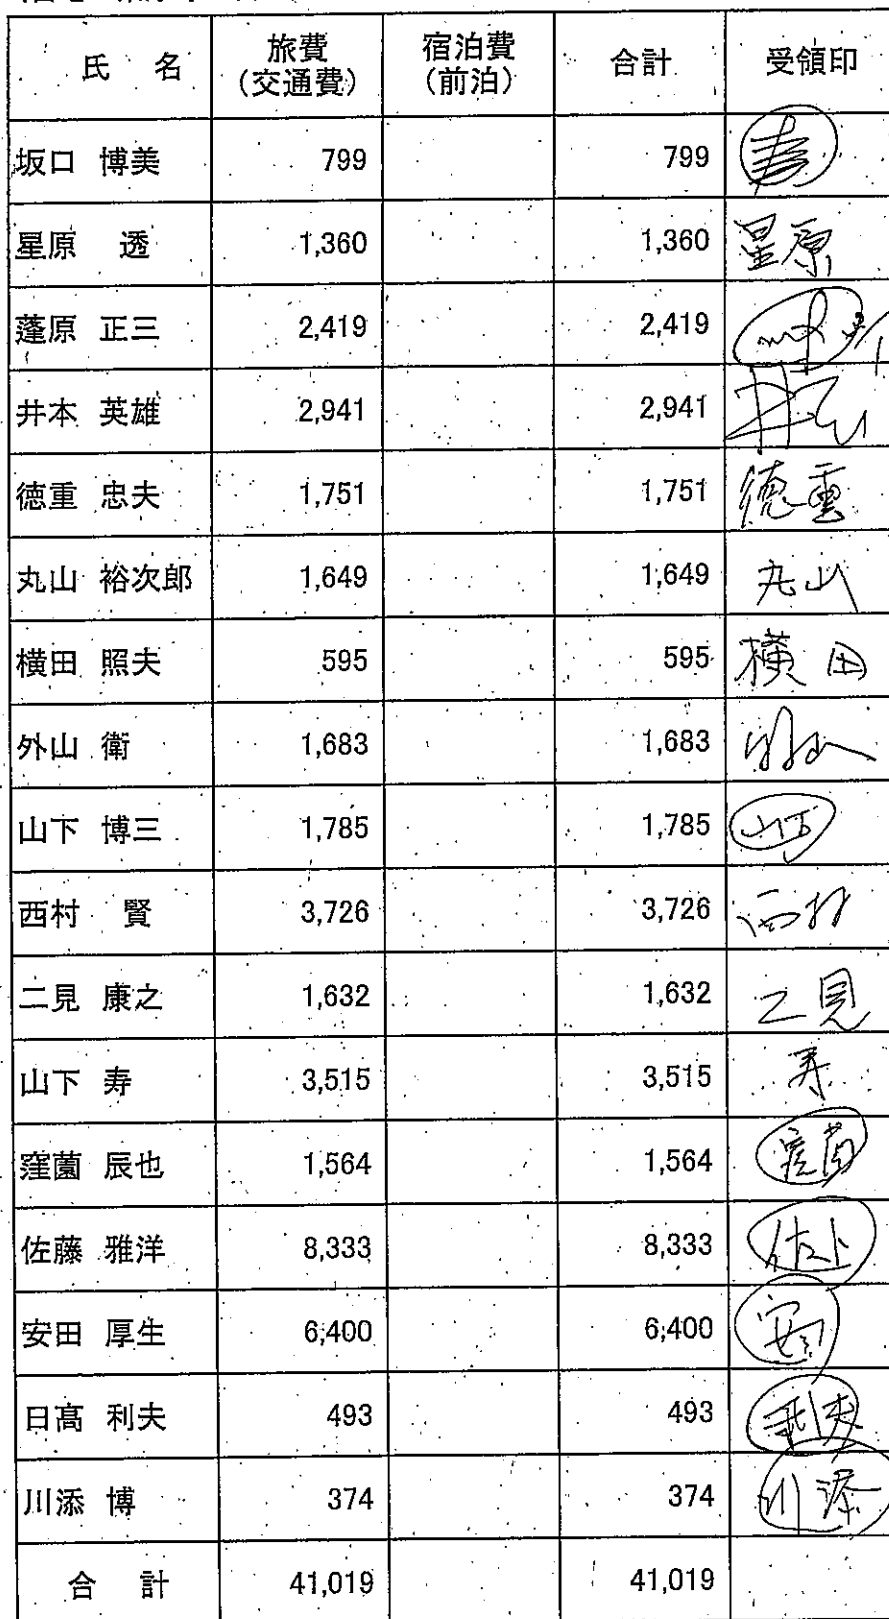 氏 名 旅費(交通費) 宿泊費(前泊) 合計 受領印
坂口 博美 799 799
星原 透 1,360 1,360 星原
蓬原 正三 2,419 2,419
井本 英雄 2,941 2,941
徳重 忠夫 1,751 1,751 徳重
丸山 裕次郎 1,649 1,649 丸山
横田 照夫 595 595 横田
外山 衛 1,683 1,683
山下 博三 1,785 1,785 山下
西村 賢 3,726 3,726 西村
二見 康之 1,632 1,632 二見
山下 寿 3,515 3,515 寿
窪薗 辰也 1,564 1,564
佐藤 雅洋 8,333 8,333
安田 厚生 6,400 6,400
日髙 利夫 493 493 利夫
川添 博 374 374 川添
合 計 41,019 41,019